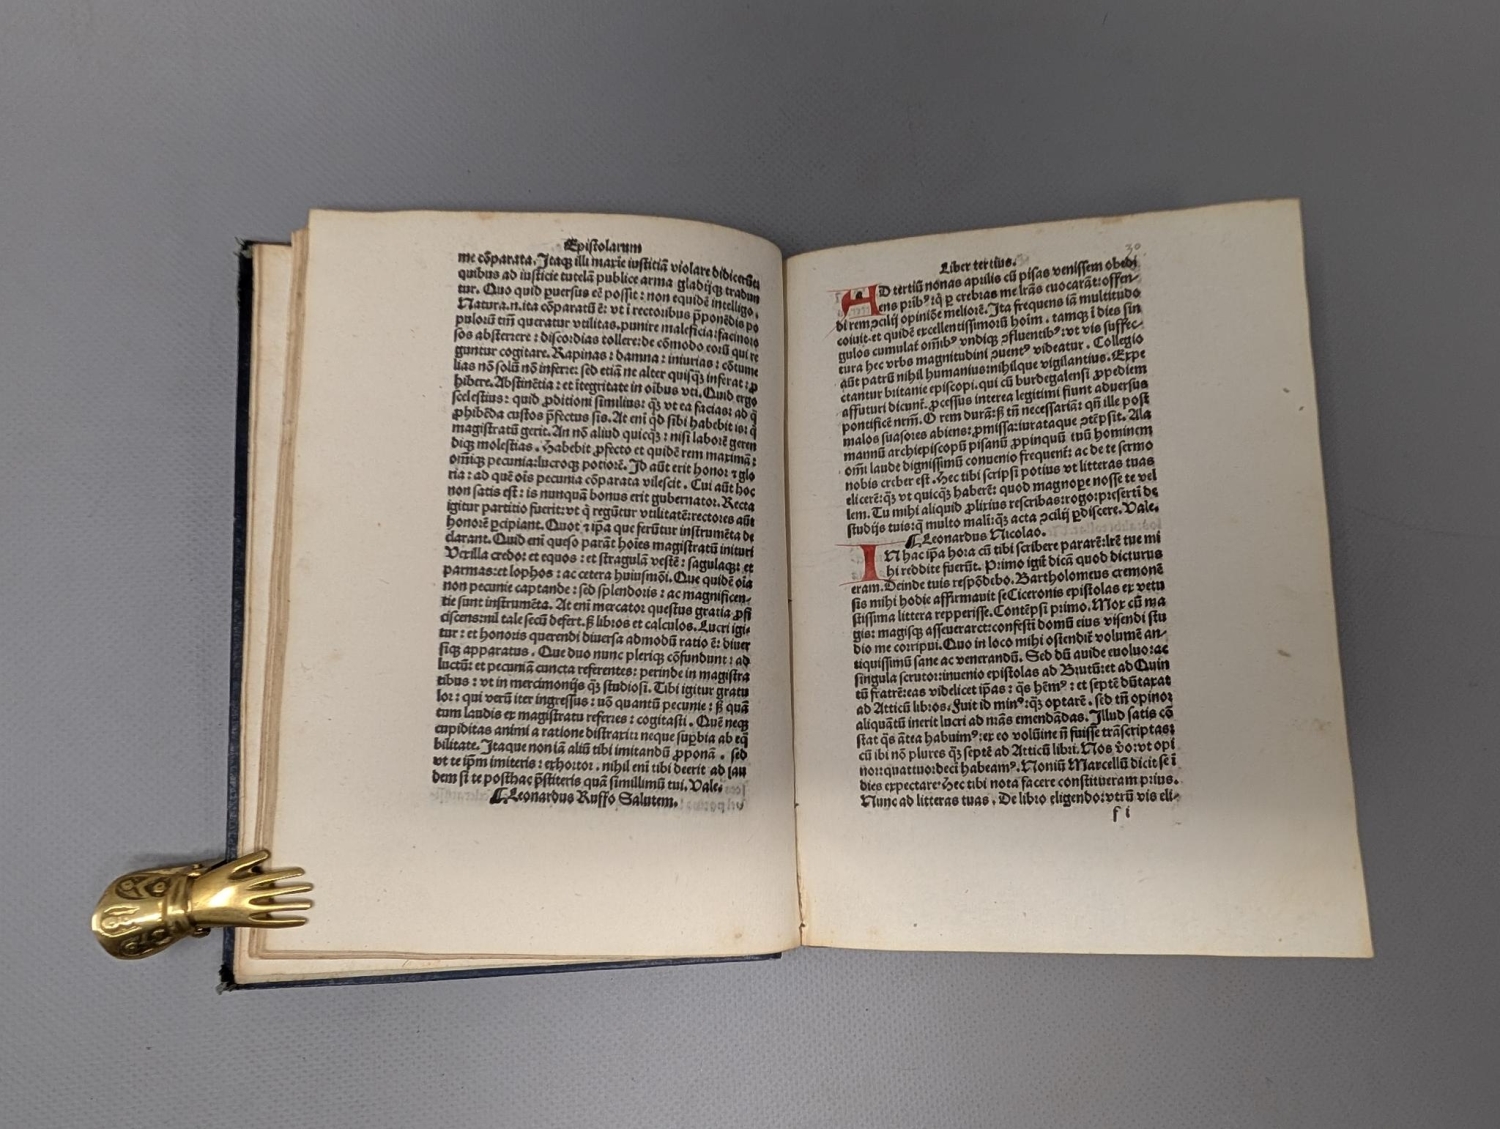 Epistolarum
me cōparata. Itaqȝ illi maxīe iustitiā violare didicerūt
quibus ad iusticie tutelā publice arma gladijqȝ tradun
tur. Quo quid ꝑuersius eē possit: non equidē intelligo.
Natura.n.ita cōparatū ē: vt i rectoribus ꝓponēdis po
pulorū tm̄ queratur vtilitas.punire maleficia:facinoro
sos absterrere: discordias tollere:de cōmodo eorū qui re
guntur cogitare. Rapinas: damna: iniurias: cōtume
lias nō solū nō inferre: sed etiā ne alter quisqȝ inferat: ꝓ
hibere. Abstinētia: et itegritate in oībus vti. Quid ergo
scelestius: quid ꝓditioni similius: qȝ vt ea facias: ad q̄
ꝓhibēda custos p̄fectus sis. At eni qd sibi habebit is: q
magistratū gerit. An nō aliud quicqȝ: nisi laborē geren
diqȝ molestias. Habebit ꝓfecto et quidē rem maximā:
om̄iqȝ pecunia:lucroqȝ potiorē. Id aūt erit honor ⁊ glo
ria: ad quē oīs pecunia cōparata vilescit. Cui aūt hoc
non satis est: is nunquā bonus erit gubernator. Recta
igitur partitio fuerit: vt q̄ regūtur vtilitatē:rectores aūt
honorē ꝑcipiant. Quot ⁊ ip̄a que ferūtur instrumēta de
clarant. Quid eni queso parāt hoīes magistratū inituri
Vexilla credo: et equos: et stragulā vestē: sagulaqȝ: et
parmas:et lophos: ac cetera huiusmōi. Que quidē oīa
non pecunie captande: sed splendoris: ac magnificen-
tie sunt instrumēta. At eni mercator questus gratia ꝓfi
ciscens:nil tale secū defert.ß libros et calculos. Lucri igi-
tur: et honoris querendi diuersa admodū ratio ē: diuer
siqȝ apparatus. Que duo nunc pleriqȝ cōfundunt: ad
luctū: et pecuniā cuncta referentes: perinde in magistra
tibus: vt in mercimonijs qȝ studiosi. Tibi igitur gratu
lor: qui verū iter ingressus: nō quantū pecunie: ß quā
tum laudis ex magistratu referres: cogitasti. Quē neqȝ
cupiditas animi a ratione distraxit: neque suꝑbia ab eq̄
bilitate. Itaque non iā aliū tibi imitandū ꝓponā. sed
vt te ip̄m imiteris: exhortor. nihil eni tibi deerit ad lau
dem si te posthac p̄stiteris quā simillimū tui. Vale.
¶ Leonardus Ruffo Salutem.
30
Liber tertius.
AD tertiū nonas aprilis cū pisas venissem obedi
ens prib⁹: q̄ ꝑ crebras me lrās euocarāt:offen-
di rem ꝯcilij opiniōe meliorē. Ita frequens iā multitudo
coiuit. et quidē excellentissimorū hoīm. tamqȝ i dies sin
gulos cumulat̄ om̄ib⁹ vndiqȝ ꝯfluentib⁹: vt vis suffec-
tura hec vrbs magnitudini ꝯuent⁹ videatur. Collegio
aūt patrū nihil humanius:nihilque vigilantius. Expe
ctantur britanie episcopi. qui cū burdegalensi ꝓpediem
affuturi dicunt̄. ꝓcessus interea legitimi fiunt aduersus
pontificē nrm̄. O rem durā: ß tn̄ necessariā: qn̄ ille post
malos suasores abiens: ꝓmissa: iurataque ꝯtēpsit. Ala
mannū archiepiscopū pisanū ꝓpinquū tuū hominem
om̄i laude dignissimū conuenio frequent̄: ac de te sermo
nobis creber est. Hec tibi scripsi potius vt litteras tuas
elicerē: qȝ vt quicqȝ haberē: quod magnopere nosse te vel
lem. Tu mihi aliquid ꝓlixius rescribas: rogo: presertī de
studijs tuis: q̄ multo mali: qȝ acta ꝯcilij ꝑdiscere. Vale.
¶ Leonardus Nicolao.
IN hac ip̄a hora cū tibi scribere pararē: lrē tue mi
hi reddite fuerūt. Primo igit̄ dicā quod dicturus
eram. Deinde tuis respōdebo. Bartholomeus cremonē
sis mihi hodie affirmauit se Ciceronis epistolas ex vetu
stissima littera repperisse. Contēpsi primo. Mox cū ma
gis: magisqȝ asseueraret: confestī domū eius visendi stu
dio me corripui. Quo in loco mihi ostendit̄ volumē an-
tiquissimū sane ac venerandū. Sed dū auide euoluo: ac
singula scrutor: inuenio epistolas ad Brutū: et ad Quin
tū fratrē: eas videlicet ip̄as: qȝ hēm⁹: et septē dūtaxat
ad Atticū libros. Fuit id min⁹: qȝ optarē. sed tn̄ opinor
aliquātū inerit lucri ad nr̄as emendādas. Illud satis cō
stat qȝ ātea habuim⁹: ex eo volūine n̄ fuisse trāscriptas:
cū ibi nō plures qȝ septē ad Atticū libri. Nos vo: vt opi
nor: quattuordecī habeam⁹. Noniū Marcellū dicit se ī
dies expectare. Hec tibi nota facere constitueram prius.
Nunc ad litteras tuas. De libro eligendo: vtrū vis eli-
f i